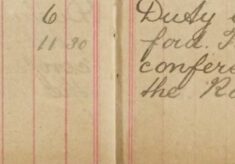 6 Duty
11 30 ford.
confere
the Ro